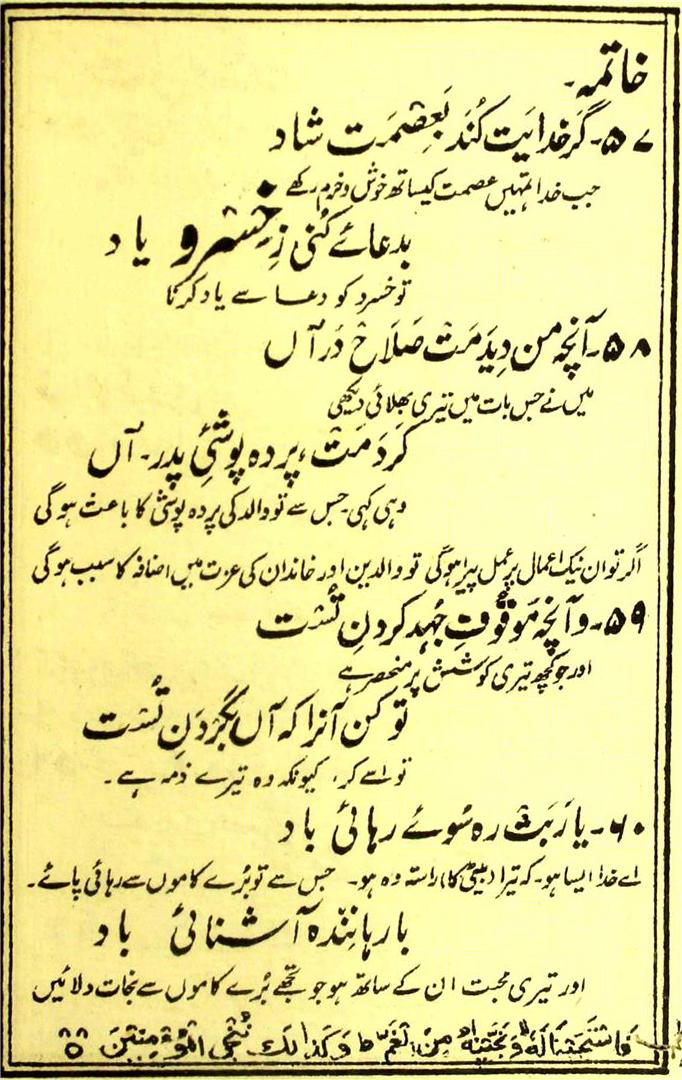 خاتمہ۔
۵۷۔ گر خدایت کُند بَعِصْمَت شاد
جب خدا تمہیں عصمت کیساتھ خوش و خرم رکھے
بدعائے کُنی زِ خِسرو یاد
تو خسرو کو دعا سے یاد کرنا
۵۸۔ آنچہ من دِیدَمَتْ صَلَاحْ دَر آں
میں نے جس بات میں تیری بھلائی دیکھی
کَردَمَتْ، پردہ پوشئِ پدر۔ آں
وہی کہی۔ جس سے تو والد کی پردہ پوشی کا باعث ہوگی
اگر تو ان نیک اعمال پر عمل پیرا ہوگی تو والدین اور خاندان کی عزت میں اضافہ کا سبب ہوگی
۵۹۔ و آنچہ مَوقُوفِ جُہد کردنِ تُست
اور جو کچھ تیری کوشش پر منحصر ہے
تو کن آنرا کہ آں بگَردَنِ تُست
تو اسے کر، کیونکہ وہ تیرے ذمہ ہے۔
۶۰۔ یا رَبَتْ رہ سُوئے رہائی باد
اے خدا ایسا ہو۔ کہ تیرا (بیٹی کا) راستہ وہ ہو۔ جس سے تو بُرے کاموں سے رہائی پائے۔
با رہانِندہ آشنائی باد
اور تیری محبت ان کے ساتھ ہو جو تجھے بُرے کاموں سے نجات دلائیں
فَاسْتَجَبْنَا لَهٗ وَنَجَّيْنٰهُ مِنَ الْغَمِّ ط وَكَذٰلِكَ نُنْجِى الْمُؤْمِنِيْنَ